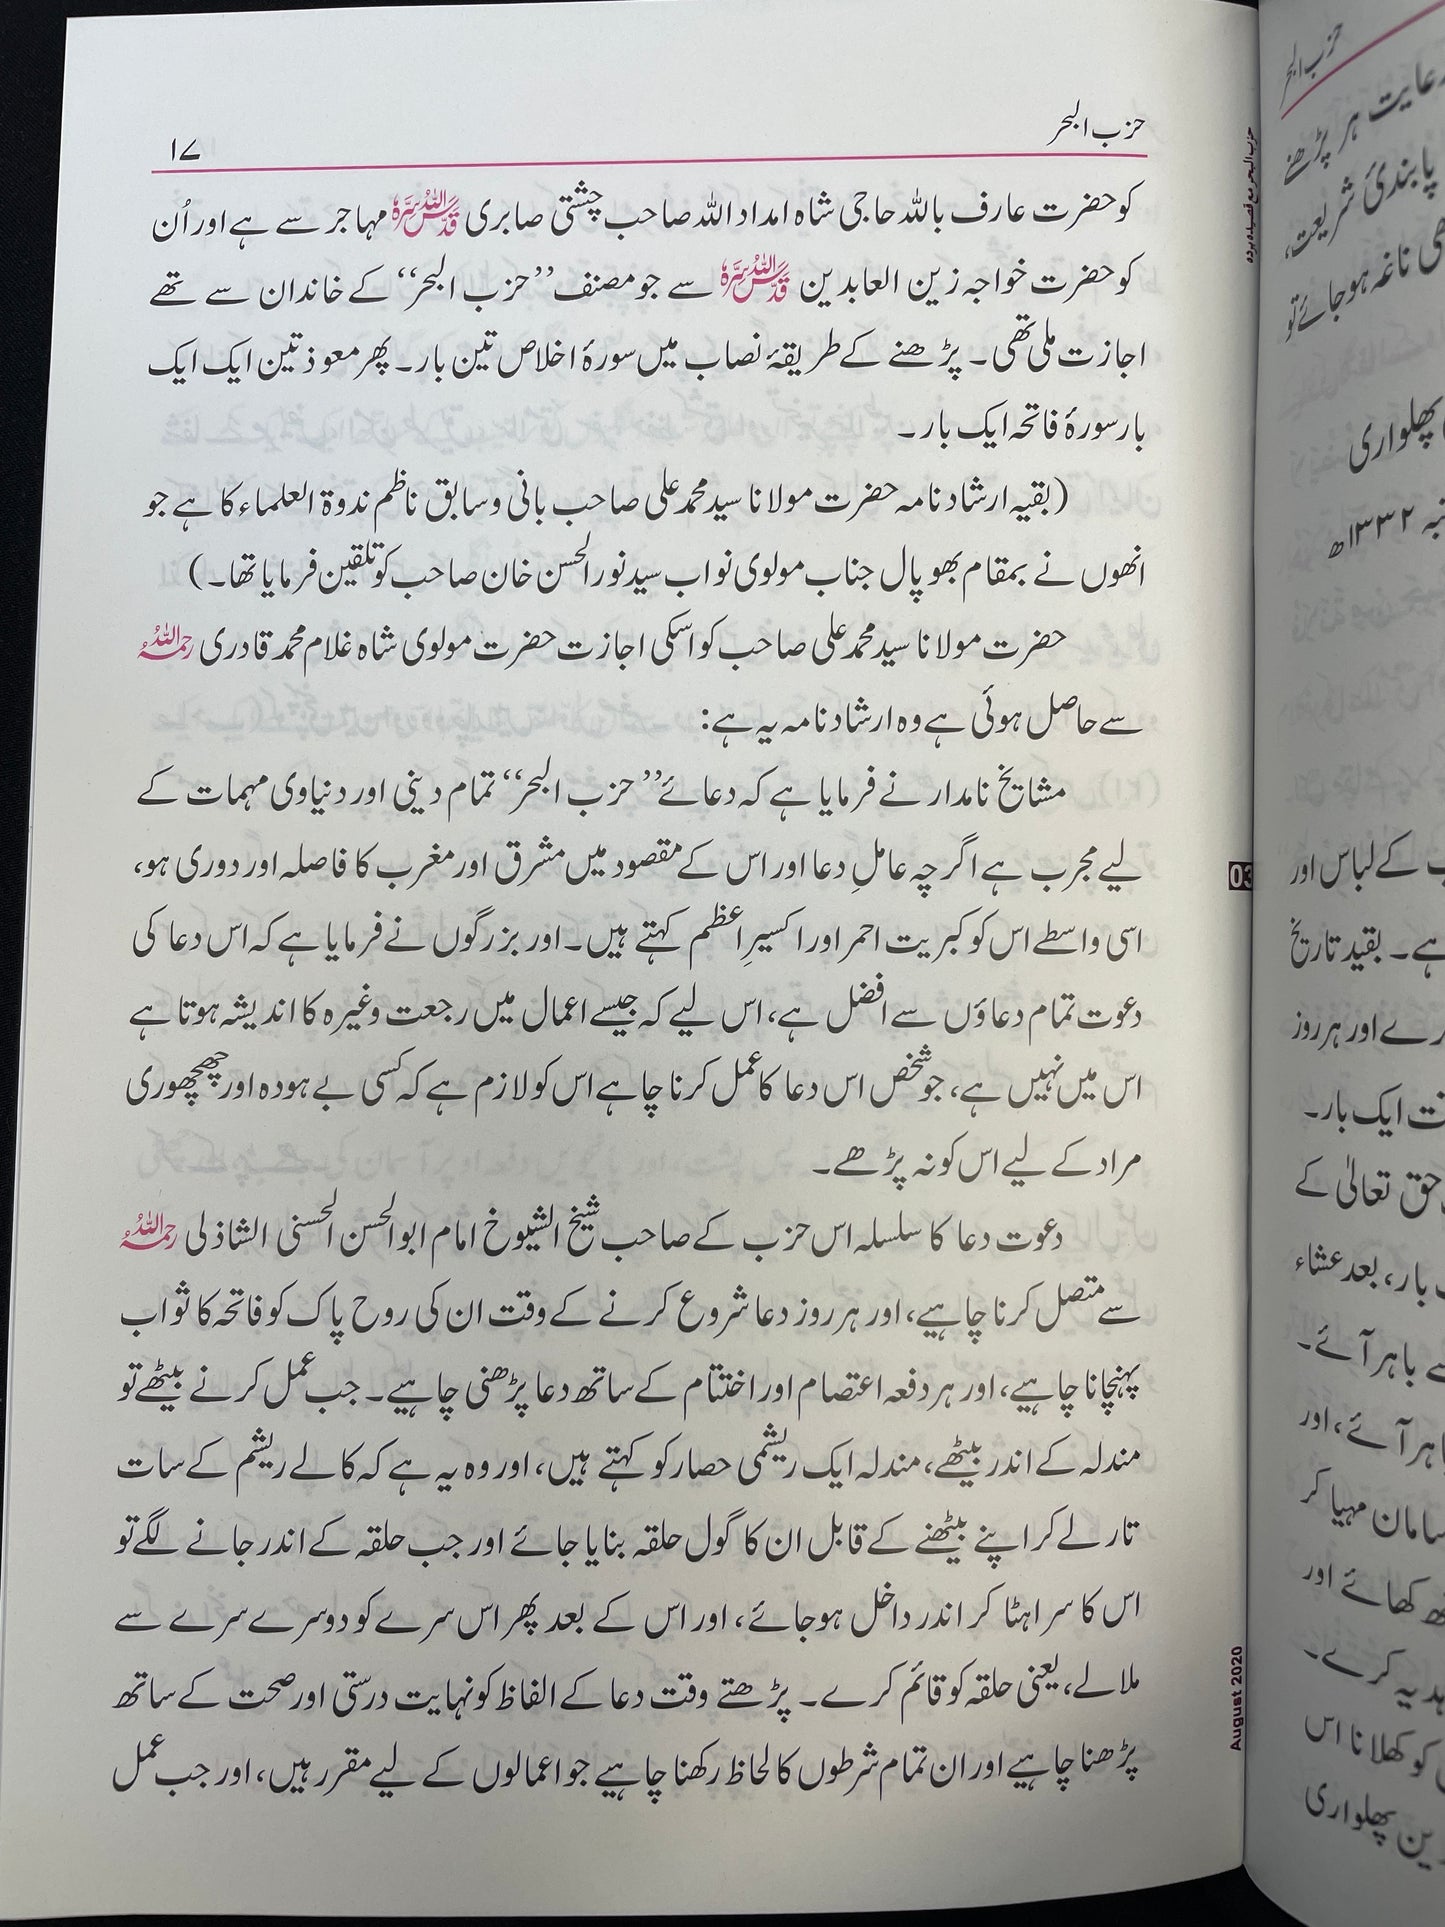 حزب البحر
۱۷
کو حضرت عارف باللہ حاجی شاہ امداد اللہ صاحب چشتی صابری قدس اللہ سرہ مہاجر سے ہے اور اُن
کو حضرت خواجہ زین العابدین قدس اللہ سرہ سے جو مصنف ’’حزب البحر‘‘ کے خاندان سے تھے
اجازت ملی تھی۔ پڑھنے کے طریقۂ نصاب میں سورۂ اخلاص تین بار۔ پھر معوذتین ایک ایک
بار سورۂ فاتحہ ایک بار۔
(بقیہ ارشاد نامہ حضرت مولانا سید محمد علی صاحب بانی و سابق ناظم ندوۃ العلماء کا ہے جو
انھوں نے بمقام بھوپال جناب مولوی نواب سید نور الحسن خان صاحب کو تلقین فرمایا تھا۔)
حضرت مولانا سید محمد علی صاحب کو اسکی اجازت حضرت مولوی شاہ غلام محمد قادری رحمہ اللہ
سے حاصل ہوئی ہے وہ ارشاد نامہ یہ ہے:
مشایخ نامدار نے فرمایا ہے کہ دعائے ’’حزب البحر‘‘ تمام دینی اور دنیاوی مہمات کے
لیے مجرب ہے اگرچہ عاملِ دعا اور اس کے مقصود میں مشرق اور مغرب کا فاصلہ اور دوری ہو،
اسی واسطے اس کو کبریت احمر اور اکسیرِ اعظم کہتے ہیں۔ اور بزرگوں نے فرمایا ہے کہ اس دعا کی
دعوت تمام دعاؤں سے افضل ہے، اس لیے کہ جیسے اعمال میں رجعت وغیرہ کا اندیشہ ہوتا ہے
اس میں نہیں ہے، جو شخص اس دعا کا عمل کرنا چاہے اس کو لازم ہے کہ کسی بے ہودہ اور چھچھوری
مراد کے لیے اس کو نہ پڑھے۔
دعوت دعا کا سلسلہ اس حزب کے صاحب شیخ الشیوخ امام ابوالحسن الحسنی الشاذلی رحمہ اللہ
سے متصل کرنا چاہیے، اور ہر روز دعا شروع کرنے کے وقت ان کی روح پاک کو فاتحہ کا ثواب
پہنچانا چاہیے، اور ہر دفعہ اعتصام اور اختتام کے ساتھ دعا پڑھنی چاہیے۔ جب عمل کرنے بیٹھے تو
مندلہ کے اندر بیٹھے، مندلہ ایک ریشمی حصار کو کہتے ہیں، اور وہ یہ ہے کہ کالے ریشم کے سات
تار لے کر اپنے بیٹھنے کے قابل ان کا گول حلقہ بنایا جائے اور جب حلقہ کے اندر جانے لگے تو
اس کا سرا ہٹا کر اندر داخل ہو جائے، اور اس کے بعد پھر اس سرے کو دوسرے سرے سے
ملا لے، یعنی حلقہ کو قائم کرے۔ پڑھتے وقت دعا کے الفاظ کو نہایت درستی اور صحت کے ساتھ
پڑھنا چاہیے اور ان تمام شرطوں کا لحاظ رکھنا چاہیے جو اعمالوں کے لیے مقرر ہیں، اور جب عمل
حزب البحر مع قصیدہ بردہ
03
August 2020
حزب البحر
ہر پڑھنے
پابندیٔ شریعت،
ناغہ ہو جائے تو
پھلواری
۱۳۳۲ھ
کے لباس اور
ہے۔ بقید تاریخ
اور ہر روز
ایک بار۔
حق تعالیٰ کے
بار، بعد عشاء
باہر آئے۔
باہر آئے، اور
سامان مہیا کر
کھائے اور
کرے۔
کو کھلانا اس
پھلواری